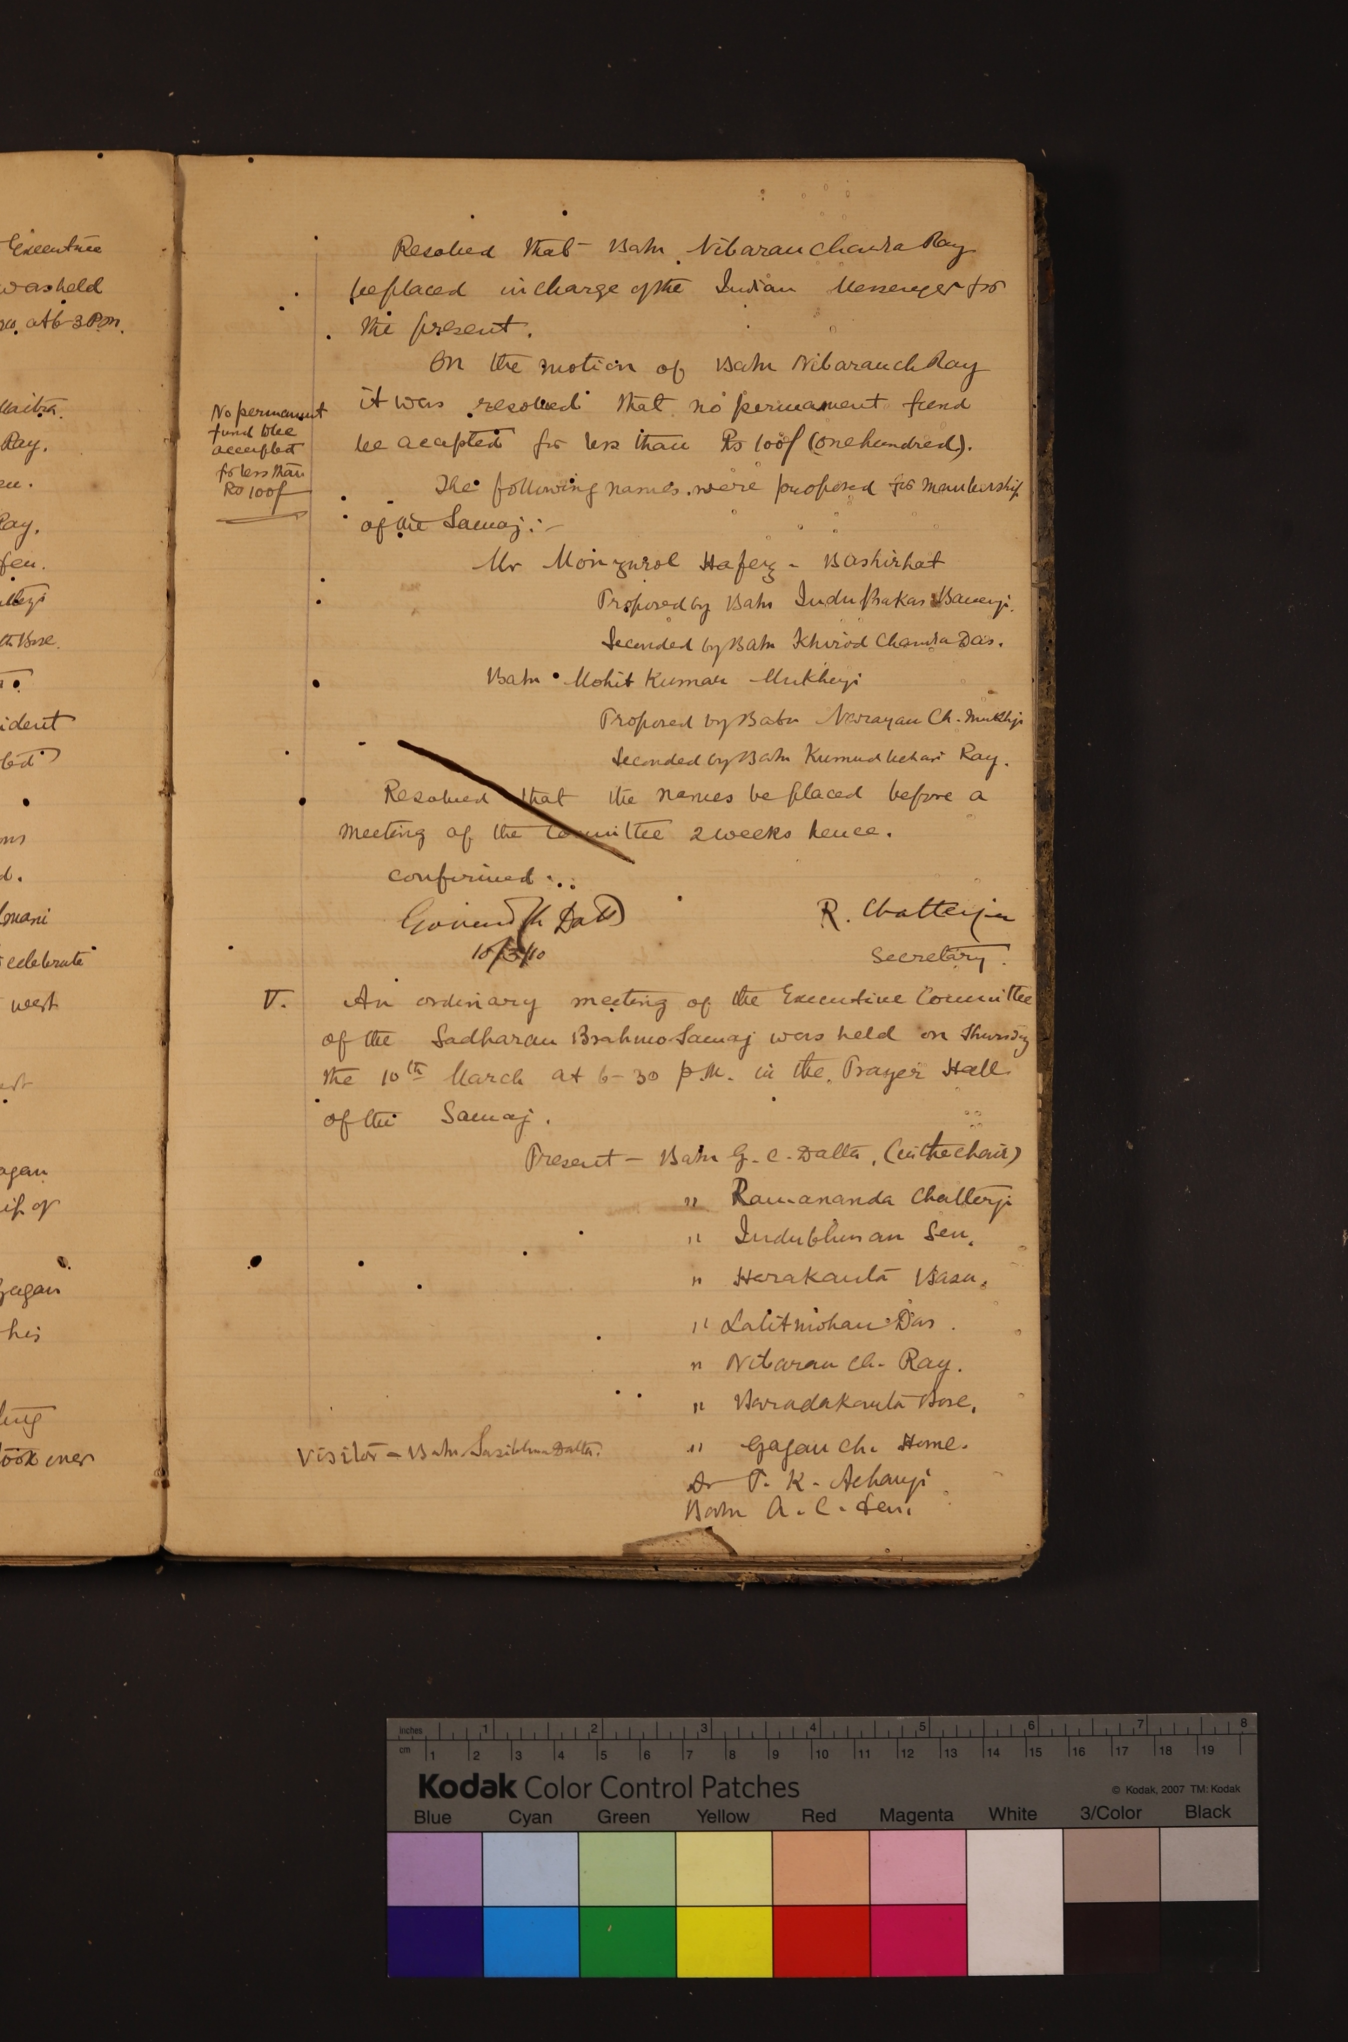 Executive
was held
at 6-30 P.M.
Maitra.
Ray.
Ray.
Sen.
th Bose.
ident
ted
d.
celebrate
west
agan
ip of
Gagan
his
took over
Resolved that Babu Nibaran Chandra Ray
be placed in charge of the Indian Messenger for
the present.
On the motion of Babu Nibaran Ch Ray
it was resolved that no permanent fund
be accepted for less than Rs 100/ (one hundred).
No permanent
fund to be
accepted
for less than
Rs 100/
The following names were proposed for membership
of the Samaj:-
Mr Monzurol Hafez - Bashirhat
Proposed by Babu Induprakas Banerji.
Seconded by Babu Khirod Chandra Das.
Babu Mohit Kumar Mukherji
Proposed by Babu Narayan Ch. Mukherji
Seconded by Babu Kumud behari Ray.
Resolved that the names be placed before a
meeting of the Committee 2 weeks hence.
confirmed
Govind Ch Datta
10/3/10
R. Chatterjee
Secretary.
V. An ordinary meeting of the Executive Committee
of the Sadharan Brahmo Samaj was held on Thursday
the 10th March at 6-30 P.M. in the Prayer Hall
of the Samaj.
Present - Babu G. C. Datta, (in the chair)
" Ramananda Chatterji
" Indubhusan Sen.
" Harakanta Basu.
" Lalitmohan Das.
" Nibaran Ch. Ray.
" Baradakanta Bose.
" Gagan Ch. Home.
Visitor - Babu Sasibhusan Datta.
Dr P. K. Acharji
Babu A. C. Sen.
inches 1 2 3 4 5 6 7 8
cm 1 2 3 4 5 6 7 8 9 10 11 12 13 14 15 16 17 18 19
Kodak Color Control Patches
© Kodak, 2007 TM: Kodak
Blue Cyan Green Yellow Red Magenta White 3/Color Black